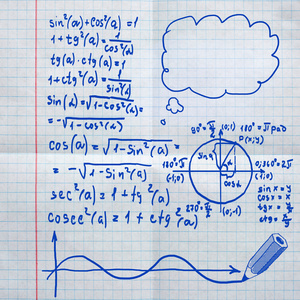 sin²(a)+cos²(a)=1
1+tg²(a)=1/cos²(a)
tg(a)·ctg(a)=1
1+ctg²(a)=1/sin²(a)
sin(α)=√1-cos²(α)=
=-√1-cos²(α)
cos(a)=√1-Sin²(a)=
=-√1-Sin²(a)
sec²(a)=1+tg²(a)
cosec²(a)=1+ctg²(a)
90°=π/2 (0;1) 180°=π рад
P(x,y)
sin α
α
180°=π
(-1;0)
0;360°=2π
(1;0)
cos α
270°=3π/2
(0;-1)
sin x = y
cos x = x
tg x = y/x
ctg = x/y